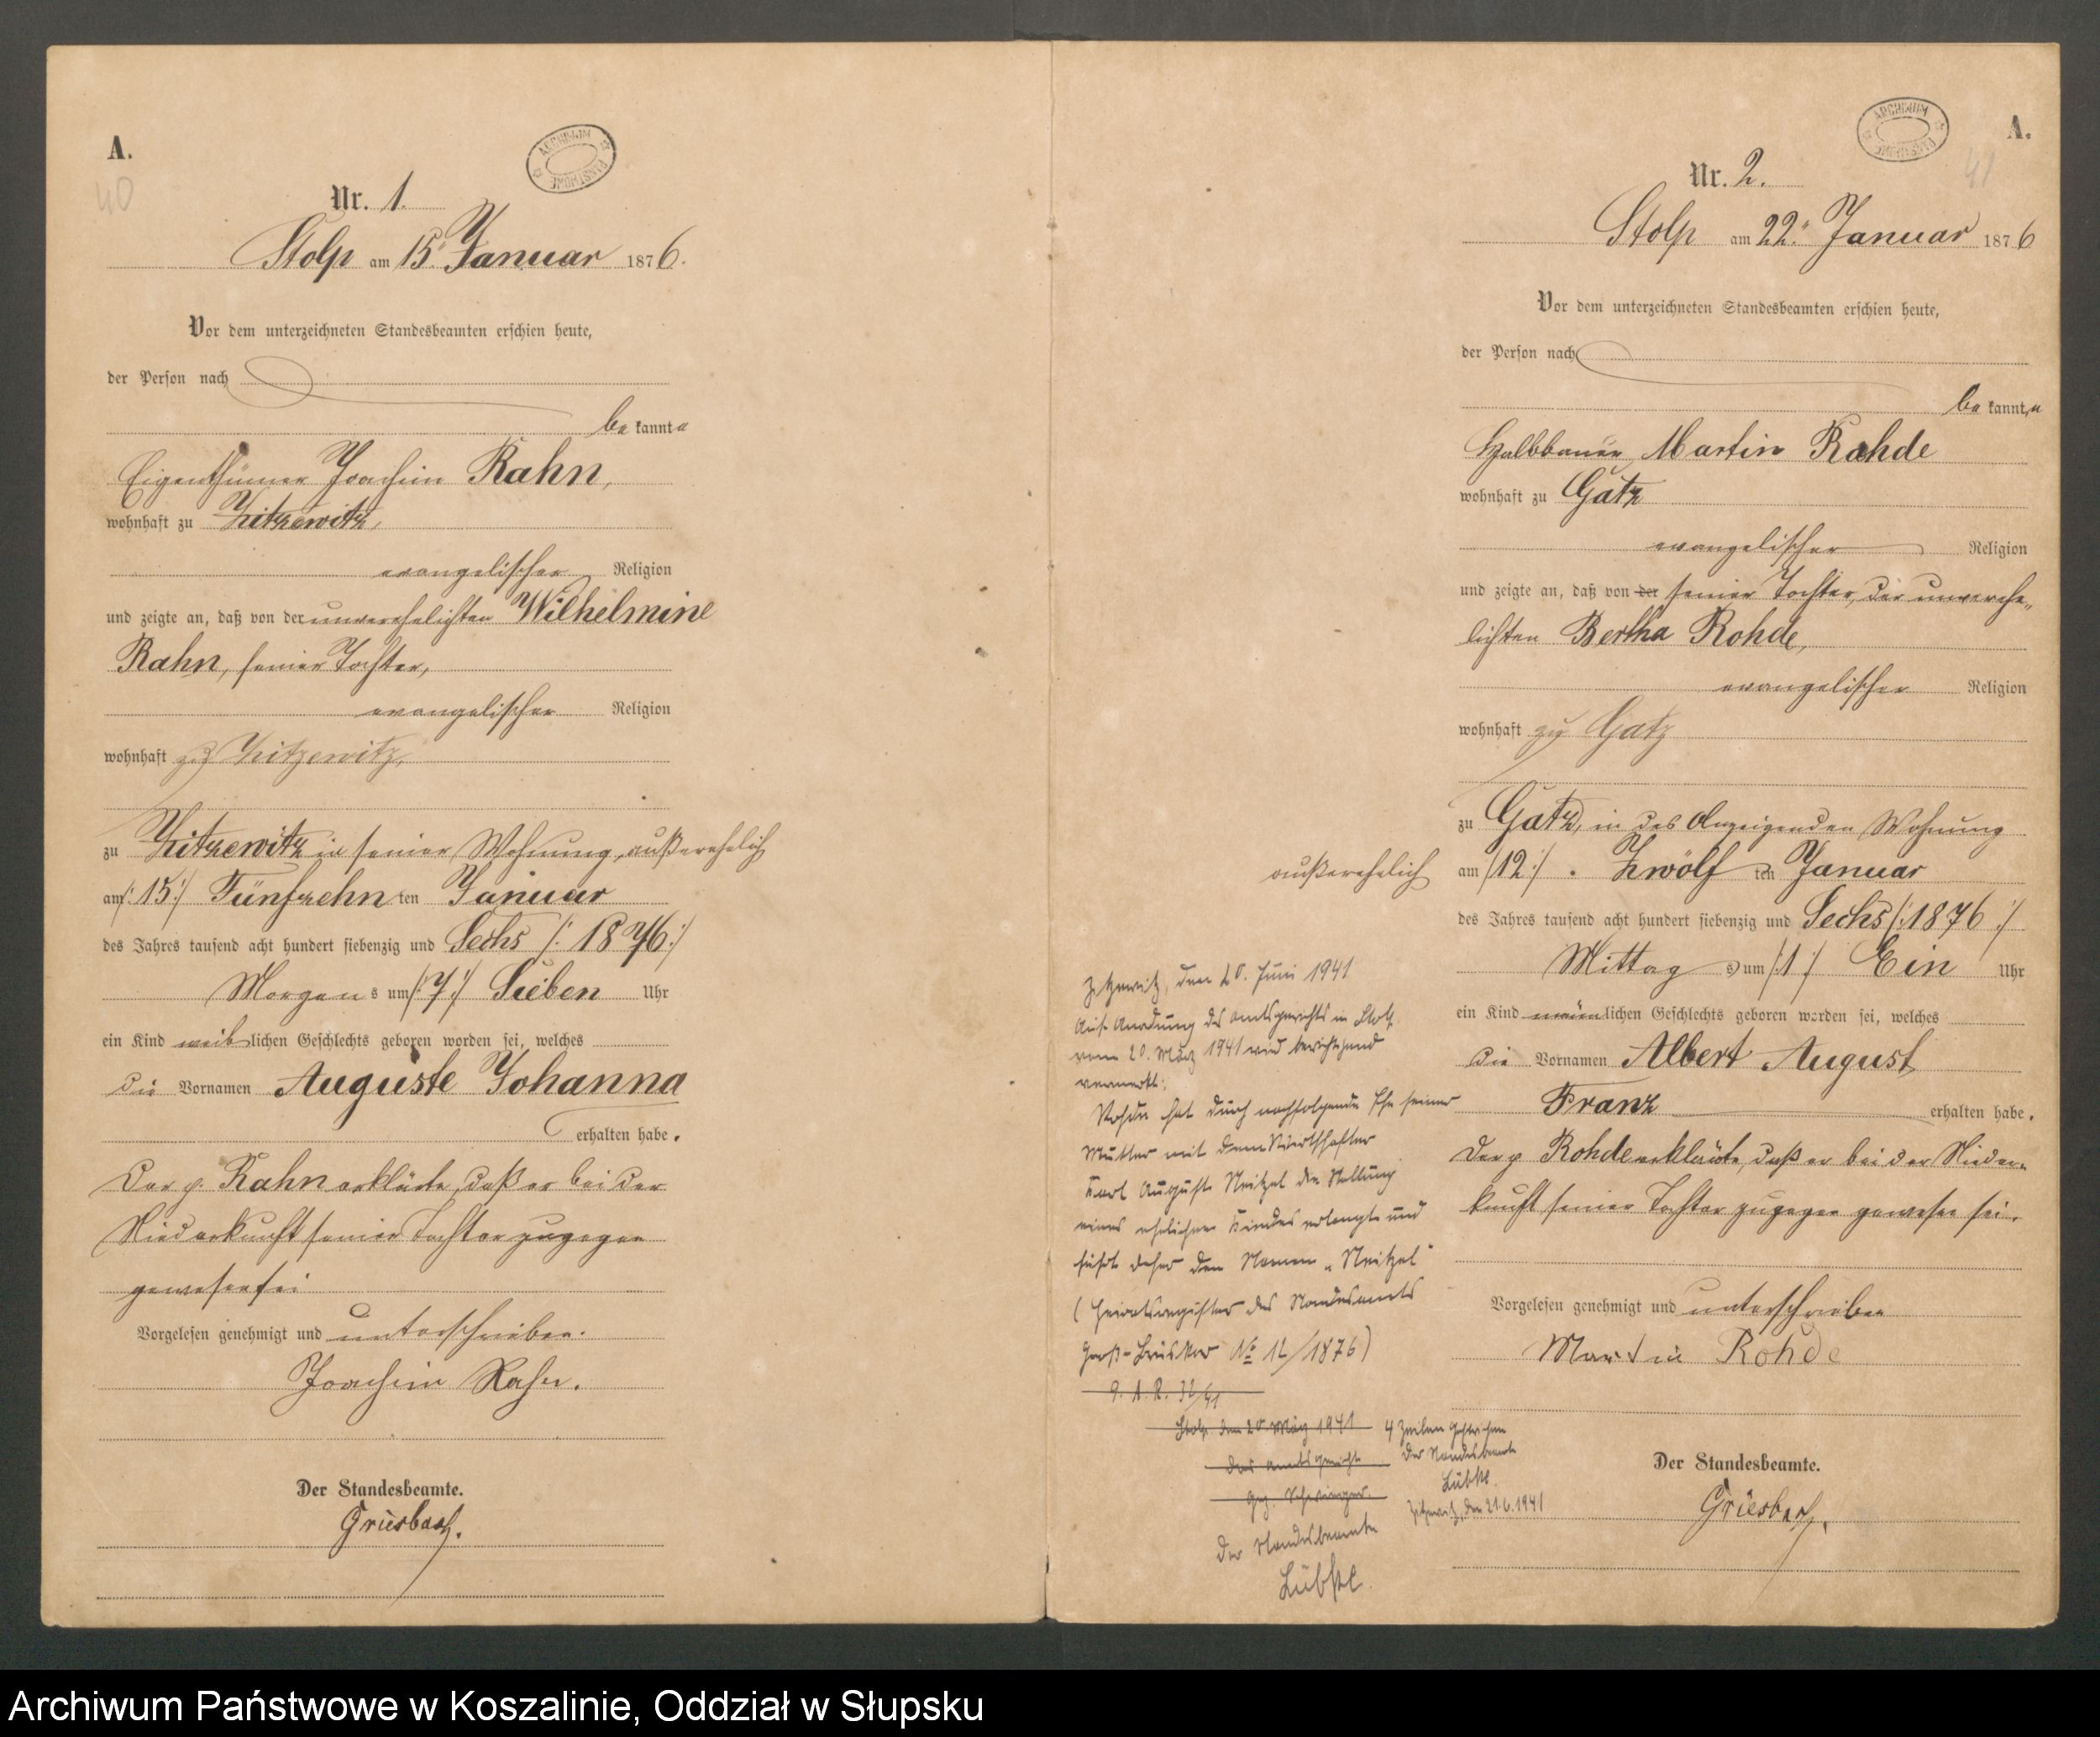 A.
40
ARCHIWUM PAŃSTWOWE
Nr. 1.
Stolp am 15. Januar 1876.
Vor dem unterzeichneten Standesbeamten erschien heute,
der Person nach
be kannte
Eigenthümer Joachim Rahn,
wohnhaft zu Zitzewitz,
evangelischer Religion
und zeigte an, daß von der unverehelichten Wilhelmine
Rahn, seiner Tochter,
evangelischer Religion
wohnhaft zu Zitzewitz,
zu Zitzewitz in seiner Wohnung, außerehelich
am /:15:/ Fünfzehnten Januar
des Jahres tausend acht hundert siebenzig und Sechs /: 1876:/
Morgens um /:7:/ Sieben Uhr
ein Kind weiblichen Geschlechts geboren worden sei, welches
die Vornamen Auguste Johanna
erhalten habe.
Der p. Rahn erklärte, daß er bei der
Niederkunft seiner Tochter zugegen
gewesen sei
Vorgelesen genehmigt und unterschrieben.
Joachim Rahn.
Der Standesbeamte.
Griesbach.
ARCHIWUM PAŃSTWOWE
A.
41
Nr. 2.
Stolp am 22. Januar 1876
Vor dem unterzeichneten Standesbeamten erschien heute,
der Person nach
be kannte
Halbbauer Martin Rohde
wohnhaft zu Gatz
evangelischer Religion
und zeigte an, daß von der seiner Tochter, der unverehe-
lichten Bertha Rohde,
evangelischer Religion
wohnhaft zu Gatz
zu Gatz, in des Anzeigenden Wohnung
außerehelich
am /:12:/ Zwölften Januar
des Jahres tausend acht hundert siebenzig und Sechs /:1876:/
Mittags um /:1:/ Ein Uhr
ein Kind männlichen Geschlechts geboren worden sei, welches
die Vornamen Albert August
Franz erhalten habe.
Der p. Rohde erklärte, daß er bei der Nieder-
kunft seiner Tochter zugegen gewesen sei.
Vorgelesen genehmigt und unterschrieben
Martin Rohde
Der Standesbeamte.
Griesbach.
Zitzewitz, den 20. Juni 1941
Auf Anordnung des Amtsgerichts in Stolp
vom 20. März 1941 wird berichtigend
vermerkt:
Rohde hat durch nachfolgende Ehe seiner
Mutter mit dem Wirthschafter
Karl August Neitzel die Stellung
eines ehelichen Kindes erlangt und
führt daher den Namen "Neitzel"
(Heiratsregister des Standesamts
Groß-Brüskow No 12/1876)
Stolp den 20 März 1941
Das Amtsgericht
gez.
Der Standesbeamte
4 Zeilen gestrichen
Der Standesbeamte
Zitzewitz, den 21.6.1941
Archiwum Państwowe w Koszalinie, Oddział w Słupsku